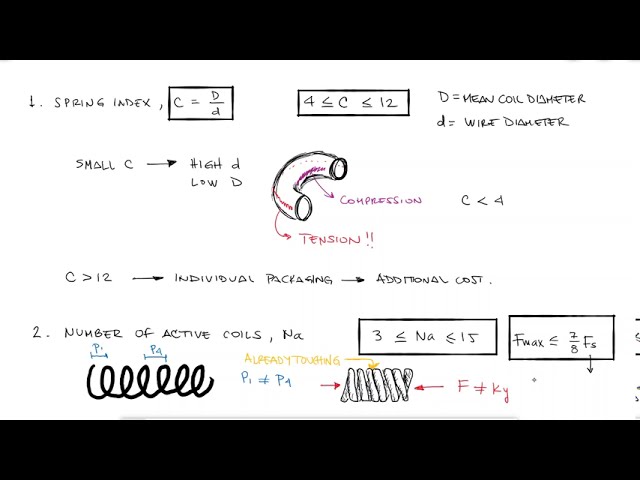 1. SPRING INDEX, C = D/d 4 ≤ C ≤ 12 D = MEAN COIL DIAMETER
d = WIRE DIAMETER
SMALL C → HIGH d
LOW D
COMPRESSION C < 4
TENSION!!
C > 12 → INDIVIDUAL PACKAGING → ADDITIONAL COST.
2. NUMBER OF ACTIVE COILS, Na 3 ≤ Na ≤ 15 Fmax ≤ 7/8 Fs
P1 P4 ALREADY TOUCHING
P1 ≠ P4 F ≠ ky